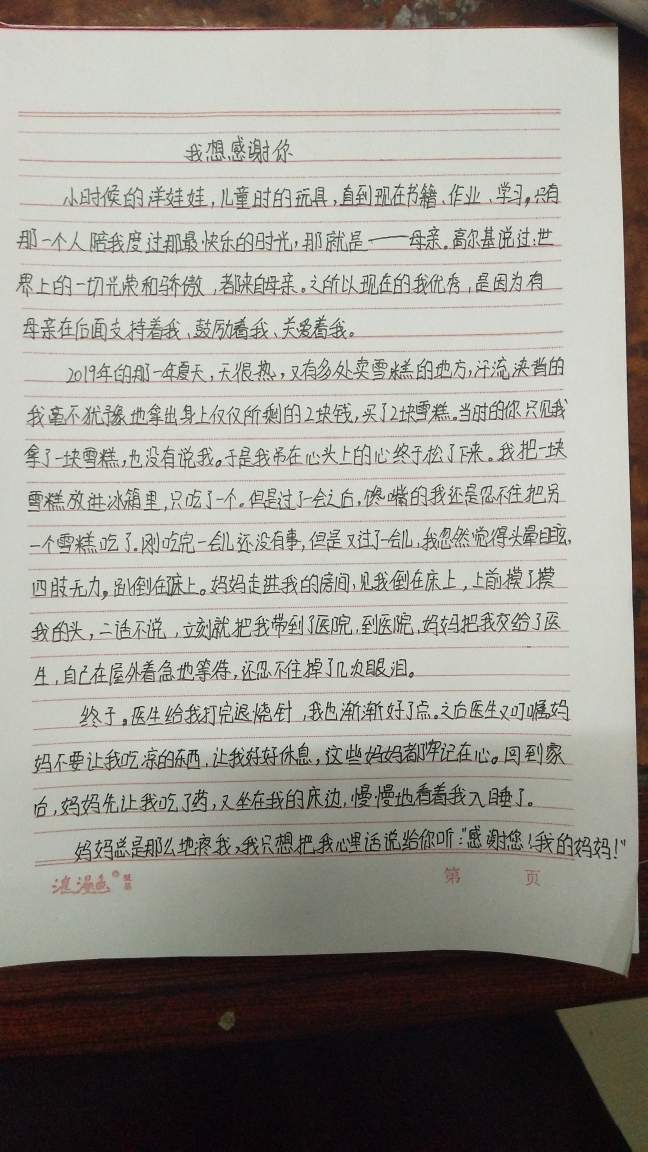 我想感谢你
小时候的洋娃娃,儿童时的玩具,直到现在书籍、作业、学习。只有
那一个人陪我度过那最快乐的时光,那就是——母亲。高尔基说过:世
界上的一切光荣和骄傲,都来自母亲。之所以现在的我优秀,是因为有
母亲在后面支持着我、鼓励着我、关爱着我。
2019年的那一年夏天,天很热,又有多处卖雪糕的地方,汗流浃背的
我毫不犹豫地拿出身上仅仅所剩的2块钱,买了2块雪糕。当时的你只见我
拿了一块雪糕,也没有说我。于是我吊在心头上的心终于松了下来。我把一块
雪糕放进冰箱里,只吃了一个。但是过了一会之后,馋嘴的我还是忍不住把另
一个雪糕吃了。刚吃完一会儿还没有事,但是又过了一会儿,我忽然觉得头晕目眩,
四肢无力。趴倒在床上。妈妈走进我的房间,见我倒在床上,上前摸了摸
我的头,二话不说,立刻就把我带到了医院,到医院,妈妈把我交给了医
生,自己在屋外着急地等待,还忍不住掉了几次眼泪。
终于。医生给我打完退烧针,我也渐渐好了点。之后医生又叮嘱妈
妈不要让我吃凉的东西,让我好好休息,这些妈妈都牢记在心。回到家
后,妈妈先让我吃了药,又坐在我的床边,慢慢地看着我入睡了。
妈妈总是那么地疼我,我只想把我心里话说给你听:"感谢您!我的妈妈!"
浪漫色®
第 页